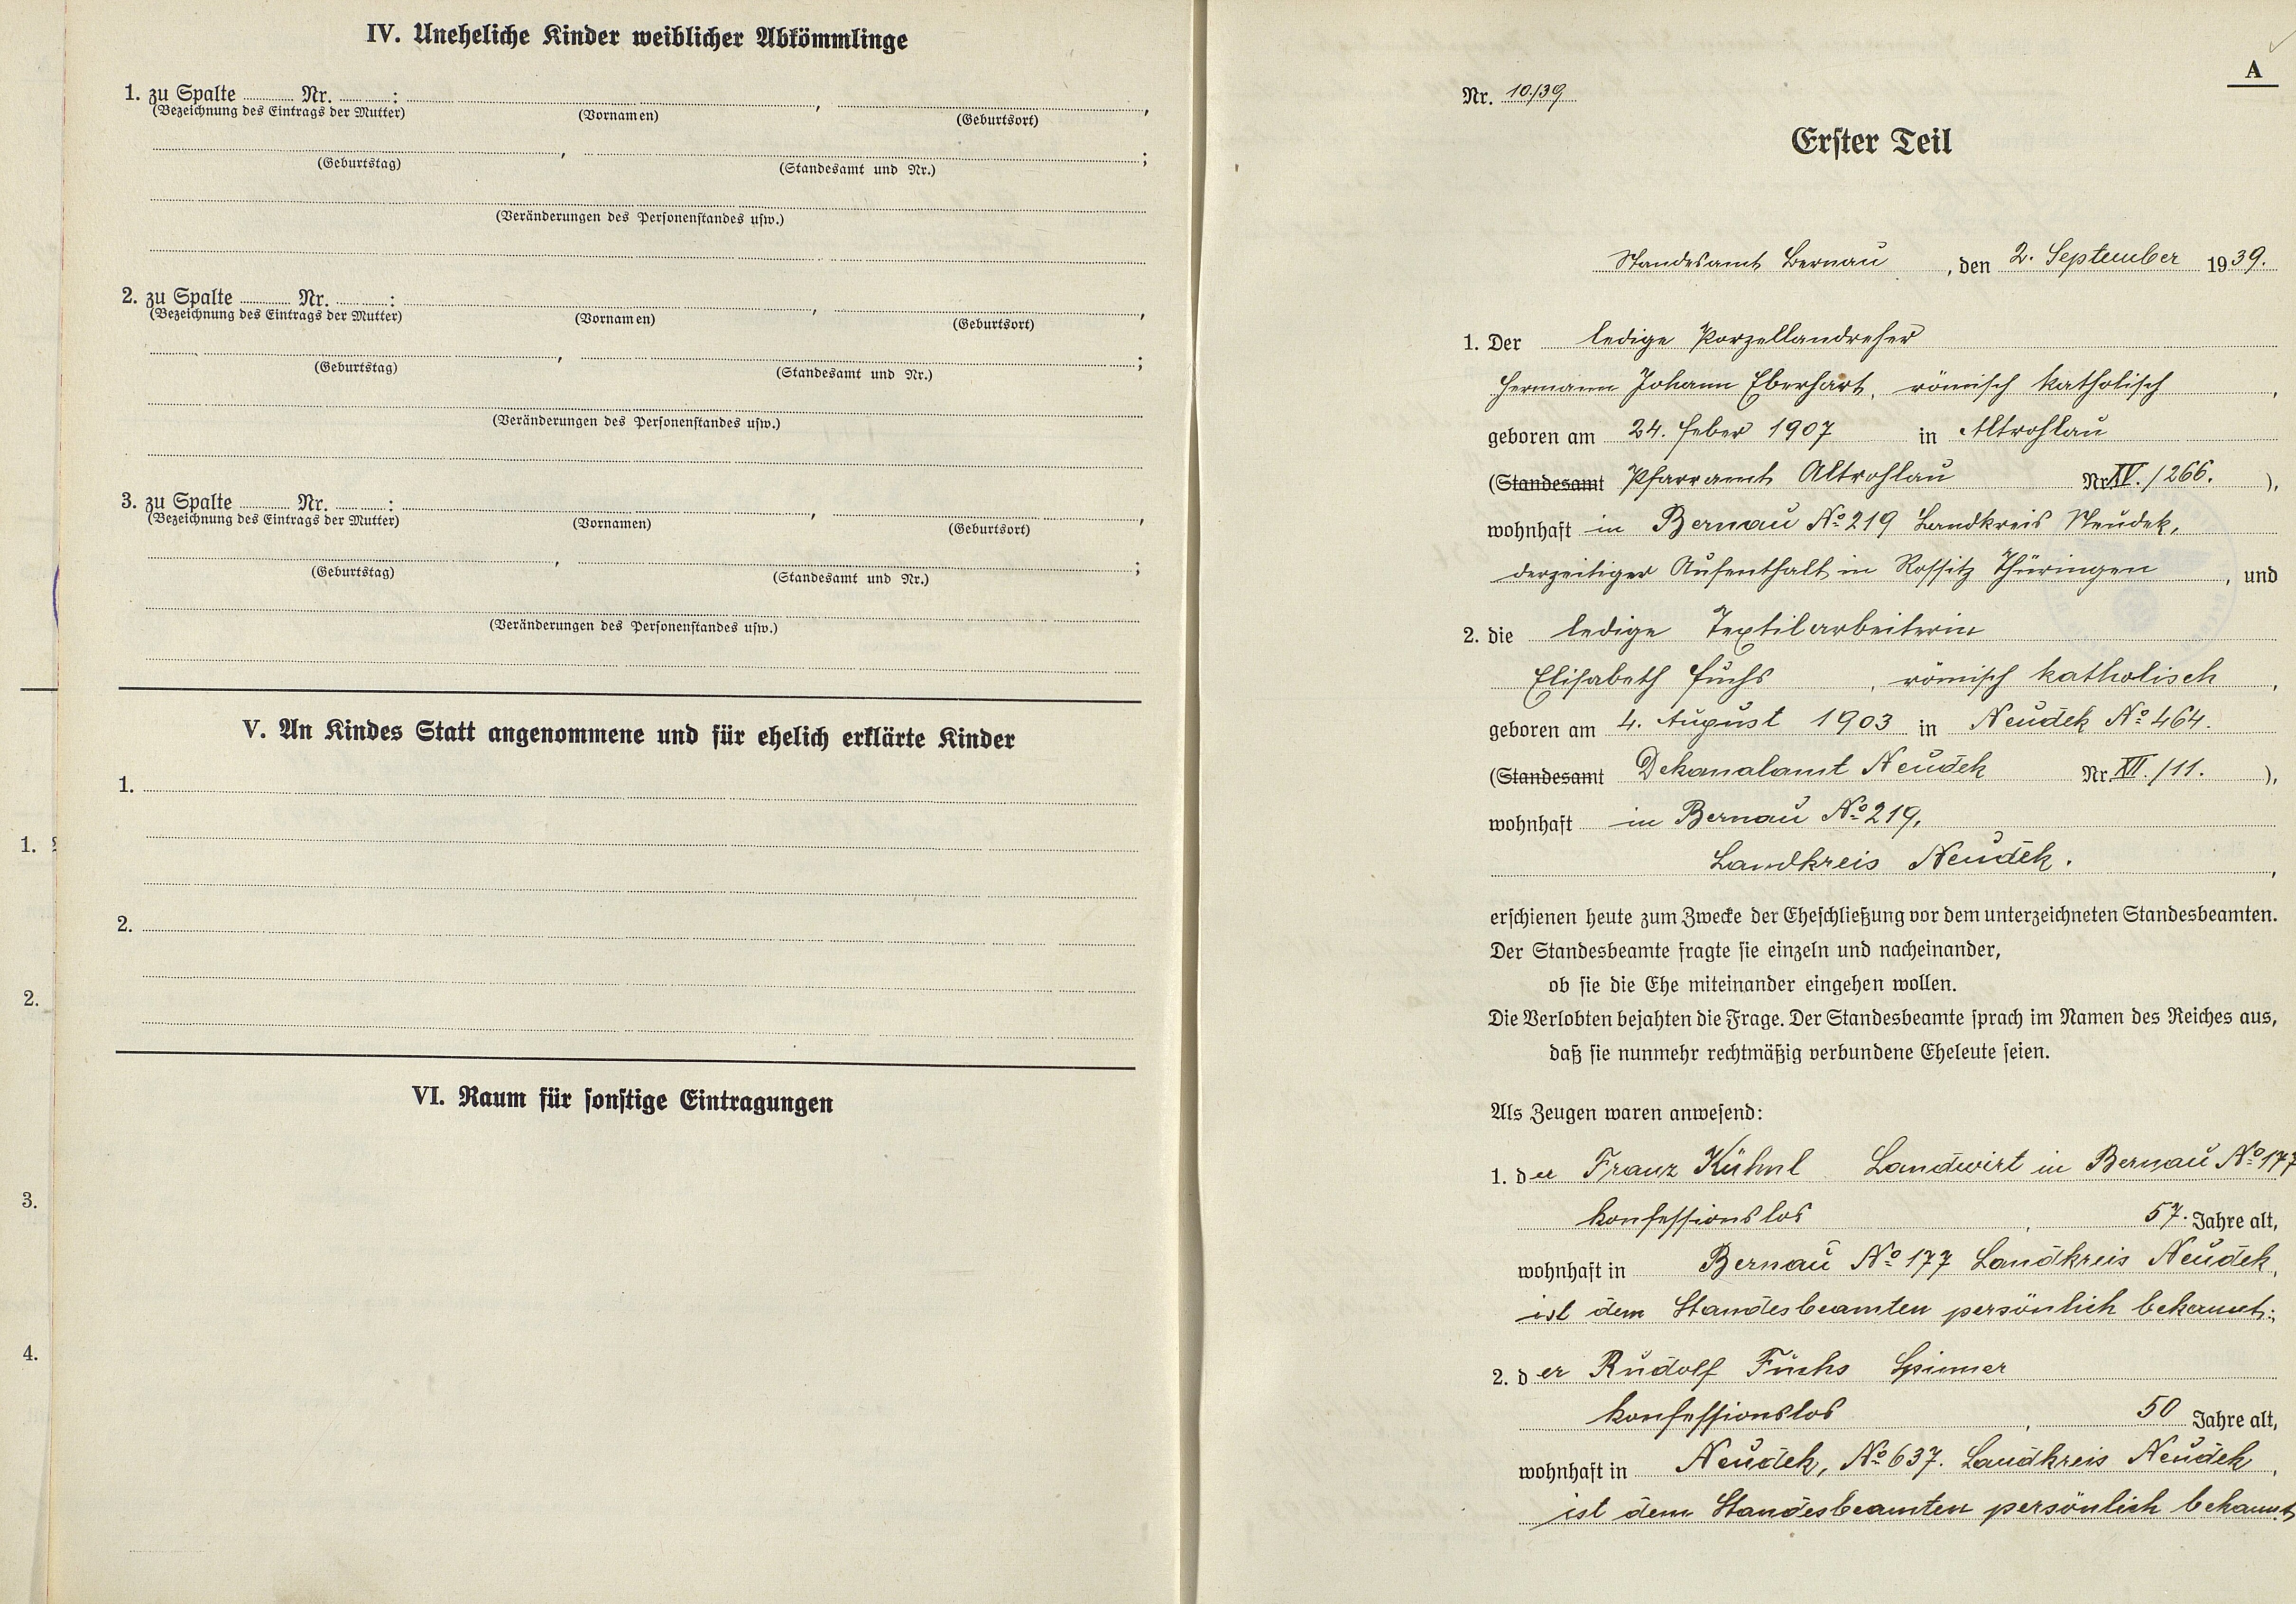 IV. Uneheliche Kinder weiblicher Abkömmlinge
1. zu Spalte ........ Nr. ........ : ........ , ........ ,
(Bezeichnung des Eintrags der Mutter) (Vornamen) (Geburtsort)
........ , ........ ;
(Geburtstag) (Standesamt und Nr.)
(Veränderungen des Personenstandes usw.)
2. zu Spalte ........ Nr. ........ : ........ , ........ ,
(Bezeichnung des Eintrags der Mutter) (Vornamen) (Geburtsort)
........ , ........ ;
(Geburtstag) (Standesamt und Nr.)
(Veränderungen des Personenstandes usw.)
3. zu Spalte ........ Nr. ........ : ........ , ........ ,
(Bezeichnung des Eintrags der Mutter) (Vornamen) (Geburtsort)
........ , ........ ;
(Geburtstag) (Standesamt und Nr.)
(Veränderungen des Personenstandes usw.)
V. An Kindes Statt angenommene und für ehelich erklärte Kinder
1.
2.
VI. Raum für sonstige Eintragungen
1.
2.
3.
4.
A
Nr. 10/39
Erster Teil
Standesamt Bernau, den 2. September 1939.
1. Der ledige Porzellandreher
Hermann Johann Eberhart, römisch katholisch,
geboren am 24. Feber 1907 in Altrohlau
(Standesamt Pfarramt Altrohlau Nr. XV./266. ),
wohnhaft in Bernau No 219 Landkreis Neudek,
derzeitiger Aufenthalt in Rossitz Thüringen, und
2. die ledige Textilarbeiterin
Elisabeth Fuchs, römisch katholisch,
geboren am 4. August 1903 in Neudek No 464.
(Standesamt Dekanalamt Neudek Nr. XII./11. ),
wohnhaft in Bernau No 219,
Landkreis Neudek.,
erschienen heute zum Zwecke der Eheschließung vor dem unterzeichneten Standesbeamten.
Der Standesbeamte fragte sie einzeln und nacheinander,
ob sie die Ehe miteinander eingehen wollen.
Die Verlobten bejahten die Frage. Der Standesbeamte sprach im Namen des Reiches aus,
daß sie nunmehr rechtmäßig verbundene Eheleute seien.
Als Zeugen waren anwesend:
1. der Franz Kühnl Landwirt in Bernau No 177
konfessionslos, 57. Jahre alt,
wohnhaft in Bernau No 177 Landkreis Neudek,
ist dem Standesbeamten persönlich bekannt;
2. der Rudolf Fuchs Spinner
konfessionslos, 50 Jahre alt,
wohnhaft in Neudek, No 637. Landkreis Neudek,
ist dem Standesbeamten persönlich bekannt